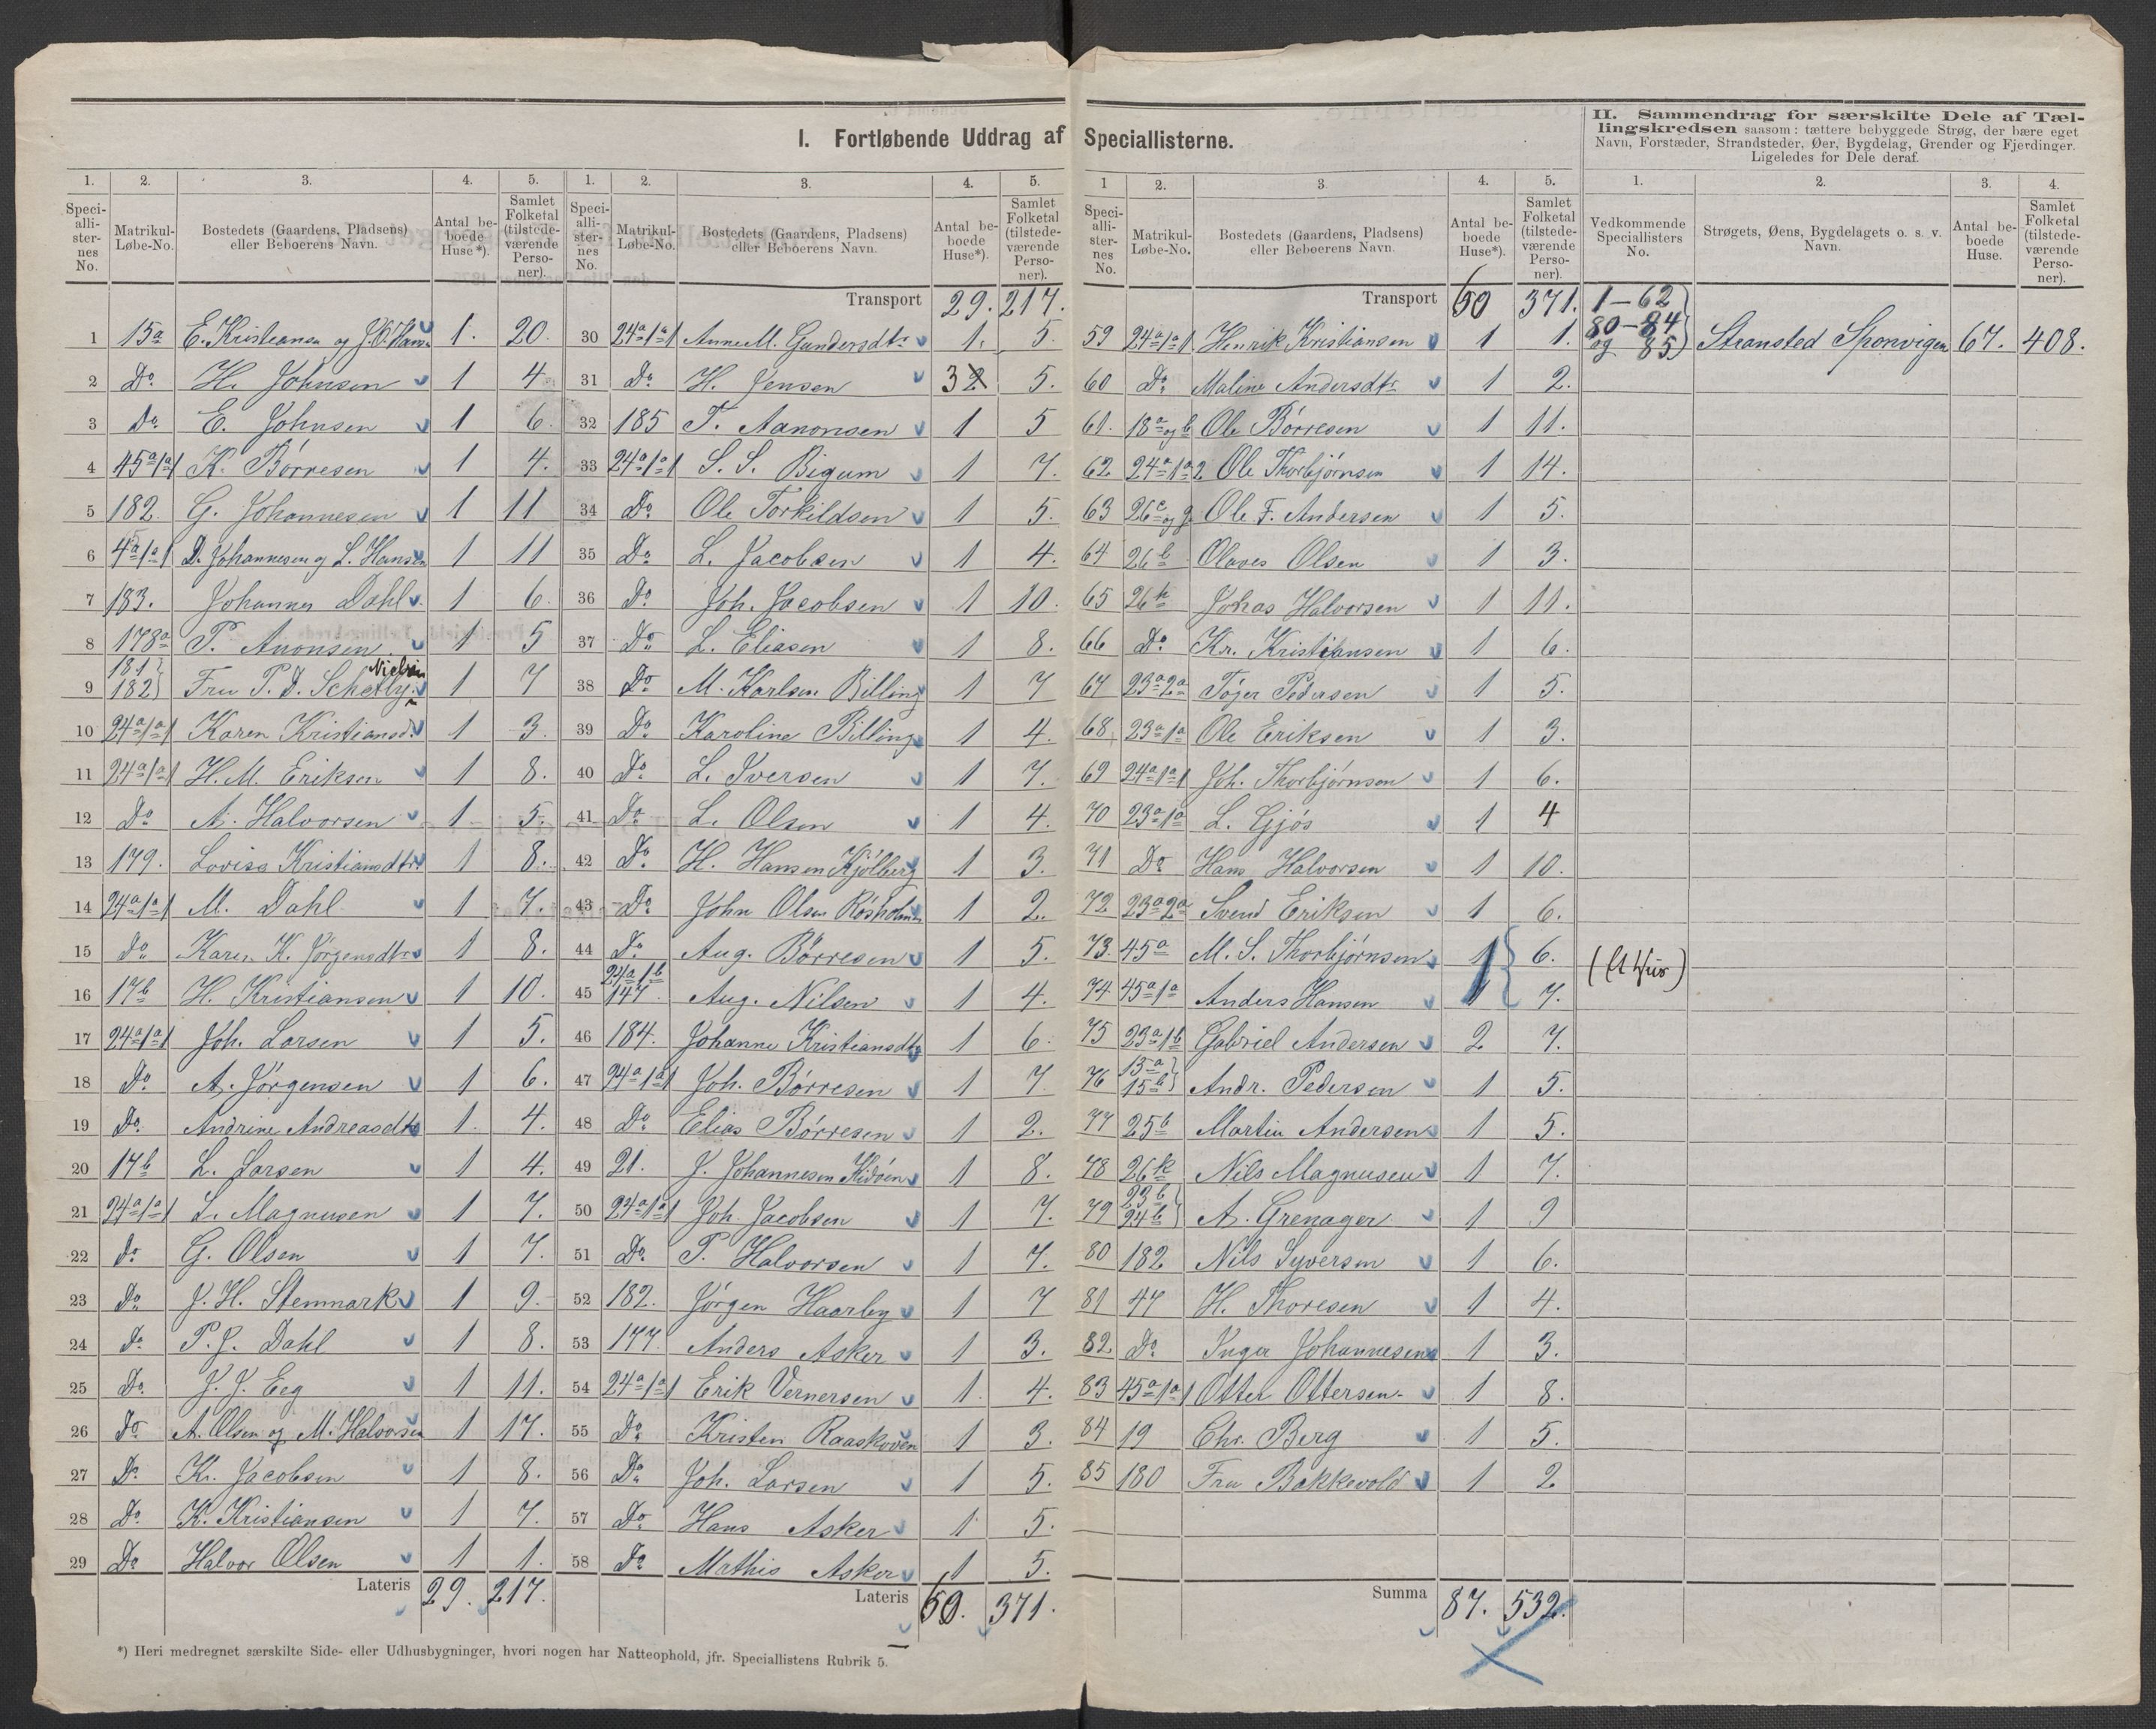 I. Fortløbende Uddrag af Speciallisterne.
II. Sammendrag for særskilte Dele af Tæl-
lingskredsen saasom: tættere bebyggede Strøg, der bære eget
Navn, Forstæder, Strandsteder, Øer, Bygdelag, Grender og Fjerdinger.
Ligeledes for Dele deraf.
1. 2. 3. 4. 5.
Speci-alli-ster-nes No. Matrikul-Løbe-No. Bostedets (Gaardens, Pladsens) eller Beboerens Navn. Antal be-boede Huse*). Samlet Folketal (tilstede-værende Perso-ner).
1 15a E. Kristiansen og J. O. Hansen 1. 20.
2 Do H. Johnsen 1 4
3 Do E. Johnsen 1 6.
4 45a1a1 K. Børresen 1 4.
5 182. G. Johannesen 1 11
6 4a1a1 D. Johannesen og L. Hansen 1 11
7 183. Johannes Dahl 1 6.
8 178a P. Anonsen 1 5
9 181 182 Fru P. D. Schetby Nielsen 1 7
10 24a1a1 Karen Kristiansd. 1 3.
11 24a1a1 H. M. Eriksen 1 8.
12 Do A. Halvorsen 1 5.
13 179. Lovisa Kristiansdtr 1 8.
14 24a1a1 M. Dahl 1 7.
15 Do Karen K. Jørgensdtr 1 8.
16 17b H. Kristiansen 1 10.
17 24a1a1 Joh. Larsen 1 5.
18 Do A. Jørgensen 1 6.
19 Do Andrine Andreasdtr 1. 4.
20 17b L. Larsen 1 4.
21 24a1a1 L. Magnusen 1 7.
22 Do G. Olsen 1 7.
23 Do J. H. Stenmark 1 9.
24 Do P. J. Dahl 1 8.
25 Do J. J. Eeg 1 11.
26 Do A. Olsen og M. Halvorsen 1 17.
27 Do Kr. Jacobsen 1 8.
28 Do K. Kristiansen 1 7.
29 Do Halvor Olsen 1 1.
Lateris 29. 217.
1. 2. 3. 4. 5.
Speci-alli-ster-nes No. Matrikul-Løbe-No. Bostedets (Gaardens, Pladsens) eller Beboerens Navn. Antal be-boede Huse*). Samlet Folketal (tilstede-værende Perso-ner).
Transport 29. 217.
30 24a1a1 Anne M. Gundersdtr 1. 5.
31 Do H. Jensen 3 2 5.
32 185 T. Aanonsen 1 5
33 24a1a1 S. S. Bigum 1 7.
34 Do Ole Torkildsen 1 5.
35 Do L. Jacobsen 1 4.
36 Do Joh. Jacobsen 1 10.
37 Do L. Eliasen 1 8.
38 Do M. Karlsen Billing 1 7
39 Do Karoline Billing 1 4.
40 Do L. Iversen 1 7.
41 Do L. Olsen 1 4.
42 Do H. Hansen Kjølberg 1 3.
43 Do John Olsen Røsholmen 1 2.
44 Do Aug. Børresen 1 5.
45 24a1b 147 Aug. Nilsen 1 4.
46 184. Johanne Kristiansdtr 1 6.
47 24a1a1 Joh. Børresen 1 7
48 Do Elias Børresen 1 2.
49 21. J. Johannesen Kidøen 1 8.
50 24a1a1 Joh. Jacobsen 1 7.
51 Do P. Halvorsen 1 7.
52 182. Jørgen Haarby 1 7
53 177. Anders Asker 1 3.
54 24a1a1 Erik Vernersen 1. 4.
55 Do Kristen Raaskoven 1 3.
56 Do Joh. Larsen 1 5.
57 Do Hans Asker 1 5.
58 Do Mathis Asker 1 5.
Lateris 60. 371.
1 2. 3 4. 5.
Speci-alli-ster-nes No. Matrikul-Løbe-No. Bostedets (Gaardens, Pladsens) eller Beboerens Navn. Antal be-boede Huse*). Samlet Folketal (tilstede-værende Perso-ner).
Transport 60 371.
59 24a1a1 Henrik Kristiansen 1 1.
60 Do Maline Andersdtr 1 2.
61. 18a og b Ole Børresen 1 11.
62 24a1a2 Ole Thorbjørnsen 1 14.
63 26c og g Ole F. Andersen 1 5.
64 26b Olaves Olsen 1 3.
65 26h Johas Halvorsen 1 11.
66 Do Kr. Kristiansen 1 6.
67 23a2a Töger Pedersen 1 5.
68 23a1a Ole Eriksen 1 3.
69 24a1a1 Joh. Thorbjørnsen 1 6.
70 23a1a L. Gjøs 1 4
71 Do Hans Halvorsen 1 10.
72 23a2a Svend Eriksen 1 6.
73. 45a M. S. Thorbjørnsen 1 6.
74 45a1a Anders Hansen 1 7.
75 23a1b Gabriel Andersen 2 7.
76 15a 15b Andr. Pedersen 1 5.
77 25b Martin Andersen 1 5.
78 26k Nils Magnusen 1 7.
79 23b 24b A. Grenager 1 9
80 182 Nils Syversen 1 6.
81 47 H. Thoresen 1 4.
82 Do Inger Johannesen 1 3.
83 45a1a1 Otter Ottersen 1 8.
84 19 Chr. Berg 1 5.
85 180 Fru Bakkevold 1 2
Summa 87. 532.
1. 2. 3. 4.
Vedkommende Speciallisters No. Strøgets, Øens, Bygdelagets o. s. v. Navn. Antal be-boede Huse. Samlet Folketal (tilstede-værende Perso-ner).
1-62
80-84
og 85 Stransted Sponvigen 67. 408.
(et Hus)
*) Heri medregnet særskilte Side- eller Udhusbygninger, hvori nogen har Natteophold, jfr. Speciallistens Rubrik 5.